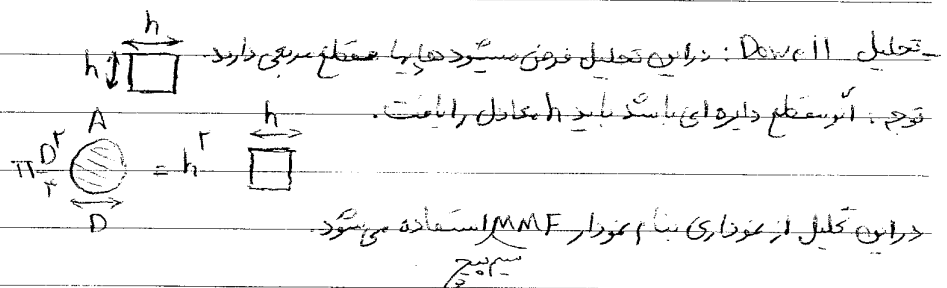 h
- تحلیل Dowell : دراین تحلیل فرض میشود هادیها مقطع مربعی دارند.
h
توجه : اگر مقطع دایره ای باشد باید h معادل را یافت.
A
h
π D۲/۴ = h۲
D
دراین تحلیل از نموداری بنام نمودار MMF استفاده می شود.
سیم پیچ